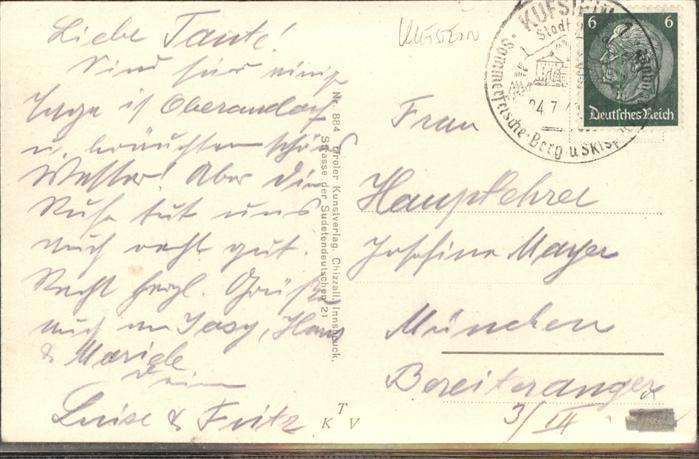 Liebe Tante!
Sind für einige
Tage in Oberaudorf
u. bräuchten schönes
Wetter! Aber die
Ruhe tut uns
auch recht gut.
Recht herzl. Grüße
auch an Hans
&
Luise & Fritz
Nr. 884 Tiroler Kunstverlag Chizzali, Innsbruck,
Strasse der Sudetendeutschen 21
K T V
KUFSTEIN
Stadt
Sommerfrische-Berg u. Skisp
24.7
6 6
Deutsches Reich
Frau
Hauptlehrer
Josefine Mayer
München
Bereiteranger
3/III